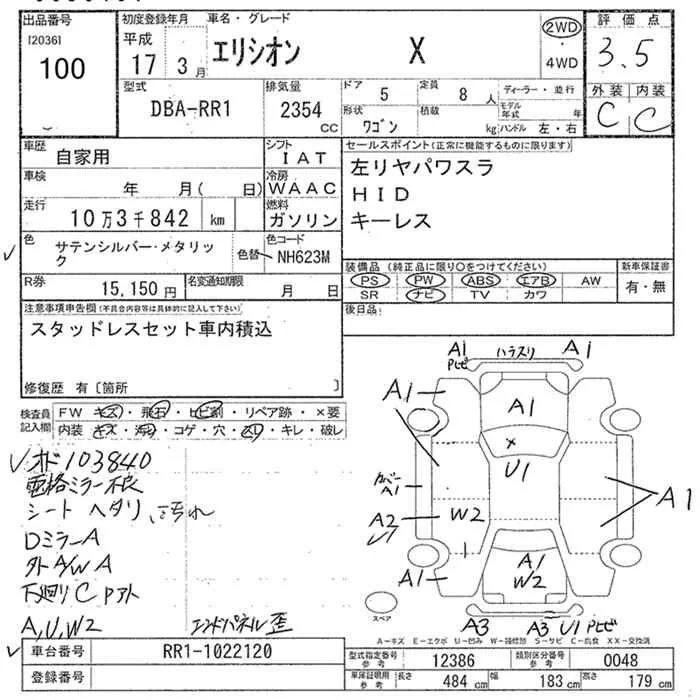 出品番号 初度登録年月 車名・グレード 2WD 評価点
[2036] 平成
100 17 3月 エリシオン X 4WD 3.5
型式 排気量 ドア 5 定員 8人 ディーラー・並行 外装 内装
DBA-RR1 2354 cc 形状 ワゴン 積載 kg モデル年式 年 ハンドル 左・右 C C
車歴 自家用 シフト IAT セールスポイント(正常に機能するものに限ります)
車検 年 月( 日) 冷房 WAAC 左リヤパワスラ
走行 10万3千842 km 燃料 ガソリン HID
キーレス
色 サテンシルバー・メタリック 色替 色コード NH623M
装備品 (純正品に限り○をつけてください) 新車保証書
PS PW ABS エアB AW 有・無
SR ナビ TV カワ
R券 15,150円 名変通知期限 月 日
後日品:
注意事項申告欄(不具合内容等は具体的に記入して下さい)
スタッドレスセット車内積込
修復歴 有〔箇所 〕
検査員記入欄 FW キズ・飛石・ヒビ割・リペア跡・×要
内装 キズ・汚れ・コゲ・穴・スリ・キレ・破レ
✓オド103840
電格ミラー不良
シート ヘタリ、汚れ
DミラーA
外A/W A
下廻りC Pアト
A,U,W2 エンドパネル歪
A1 ハラスリ A1
Pヒビ
A1 A1 A1
× U1
カバー A1
A2 W2 A1
A1 A1 W2
A3 A3 U1 Pヒビ
スペア
A-キズ E-エクボ U-凹み W-補修跡 S-サビ C-腐食 XX-交換済
✓ 車台番号 RR1-1022120
登録番号
型式指定番号 参考 12386 類別区分番号 参考 0048
車庫証明用 参考 長さ 484 cm 幅 183 cm 高さ 179 cm